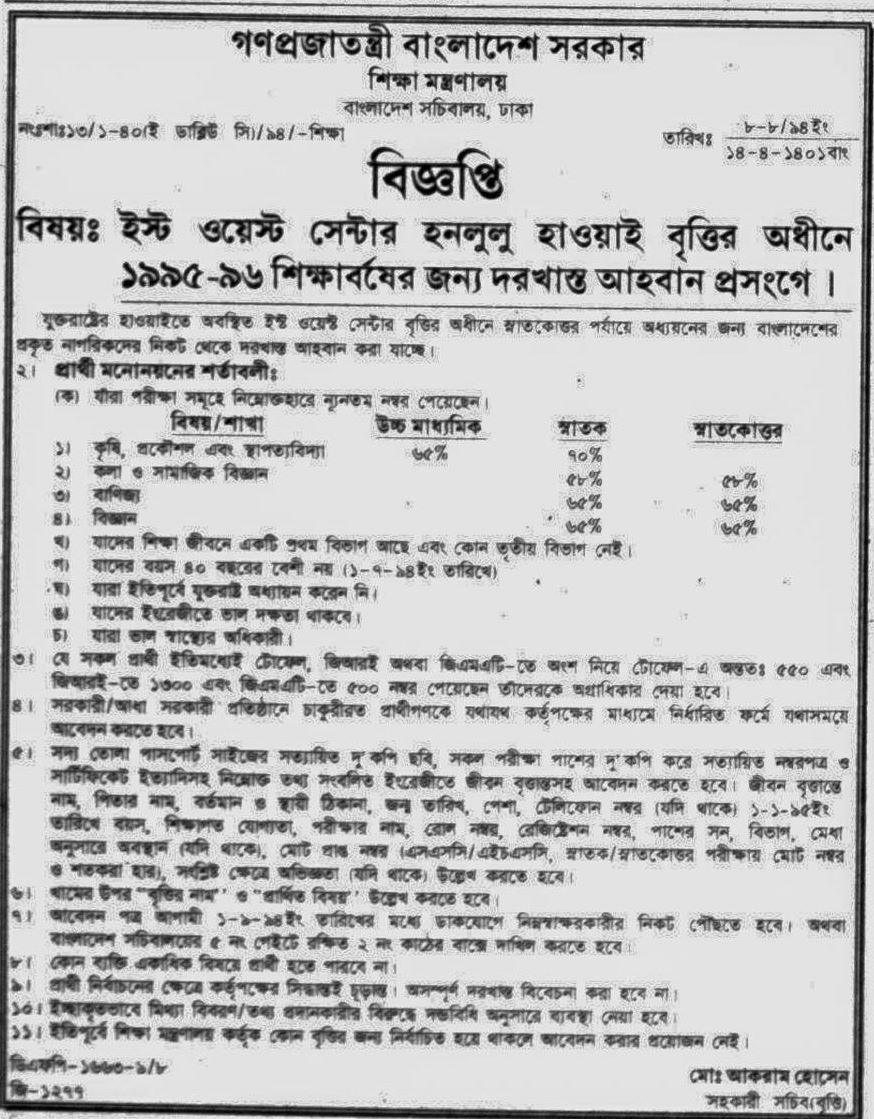 গণপ্রজাতন্ত্রী বাংলাদেশ সরকার
শিক্ষা মন্ত্রণালয়
বাংলাদেশ সচিবালয়, ঢাকা
নংশাঃ১৩/১-৪০(ই ডাব্লিউ সি)/৯৪/-শিক্ষা
তারিখঃ ৮-৮/৯৪ইং
১৪-৪-১৪০১বাং
বিজ্ঞপ্তি
বিষয়ঃ ইস্ট ওয়েস্ট সেন্টার হনলুলু হাওয়াই বৃত্তির অধীনে
১৯৯৫-৯৬ শিক্ষাবর্ষের জন্য দরখাস্ত আহবান প্রসংগে।
যুক্তরাষ্ট্রের হাওয়াইতে অবস্থিত ইষ্ট ওয়েষ্ট সেন্টার বৃত্তির অধীনে স্নাতকোত্তর পর্যায়ে অধ্যয়নের জন্য বাংলাদেশের
প্রকৃত নাগরিকদের নিকট থেকে দরখাস্ত আহবান করা যাচ্ছে।
২। প্রার্থী মনোনয়নের শর্তাবলীঃ
(ক) যাঁরা পরীক্ষা সমূহে নিম্নোক্তহারে ন্যূনতম নম্বর পেয়েছেন।
বিষয়/শাখা উচ্চ মাধ্যমিক স্নাতক স্নাতকোত্তর
১) কৃষি, প্রকৌশল এবং স্থাপত্যবিদ্যা ৬৫% ৭০%
২) কলা ও সামাজিক বিজ্ঞান ৫৮% ৫৮%
৩) বাণিজ্য ৬৫% ৬৫%
৪) বিজ্ঞান ৬৫% ৬৫%
খ) যাদের শিক্ষা জীবনে একটি প্রথম বিভাগ আছে এবং কোন তৃতীয় বিভাগ নেই।
গ) যাদের বয়স ৪০ বছরের বেশী নয় (১-৭-৯৪ইং তারিখে)
ঘ) যারা ইতিপূর্বে যুক্তরাষ্ট্রে অধ্যয়ন করেন নি।
ঙ) যাদের ইংরেজীতে ভাল দক্ষতা থাকবে।
চ) যাঁরা ভাল স্বাস্থ্যের অধিকারী।
৩। যে সকল প্রার্থী ইতিমধ্যেই টোফেল, জিআরই অথবা জিএমএটি-তে অংশ নিয়ে টোফেল-এ অন্ততঃ ৫৫০ এবং
জিআরই-তে ১৩০০ এবং জিএমএটি-তে ৫০০ নম্বর পেয়েছেন তাঁদেরকে অগ্রাধিকার দেয়া হবে।
৪। সরকারী/আধা সরকারী প্রতিষ্ঠানে চাকুরীরত প্রার্থীগণকে যথাযথ কর্তৃপক্ষের মাধ্যমে নির্ধারিত ফর্মে যথাসময়ে
আবেদন করতে হবে।
৫। সদ্য তোলা পাসপোর্ট সাইজের সত্যায়িত দু'কপি ছবি, সকল পরীক্ষা পাশের দু'কপি করে সত্যায়িত নম্বরপত্র ও
সার্টিফিকেট ইত্যাদিসহ নিম্নোক্ত তথ্য সংবলিত ইংরেজীতে জীবন বৃত্তান্তসহ আবেদন করতে হবে। জীবন বৃত্তান্তে
নাম, পিতার নাম, বর্তমান ও স্থায়ী ঠিকানা, জন্ম তারিখ, পেশা, টেলিফোন নম্বর (যদি থাকে) ১-১-৯৫ইং
তারিখে বয়স, শিক্ষাগত যোগ্যতা, পরীক্ষার নাম, রোল নম্বর, রেজিষ্ট্রেশন নম্বর, পাশের সন, বিভাগ, মেধা
অনুসারে অবস্থান (যদি থাকে), মোট প্রাপ্ত নম্বর (এসএসসি/এইচএসসি, স্নাতক/স্নাতকোত্তর পরীক্ষায় মোট নম্বর
ও শতকরা হার), সংশ্লিষ্ট ক্ষেত্রে অভিজ্ঞতা (যদি থাকে) উল্লেখ করতে হবে।
৬। খামের উপর "বৃত্তির নাম" ও "প্রার্থিত বিষয়" উল্লেখ করতে হবে।
৭। আবেদন পত্র আগামী ১-৯-৯৪ইং তারিখের মধ্যে ডাকযোগে নিম্নস্বাক্ষরকারীর নিকট পৌঁছতে হবে। অথবা
বাংলাদেশ সচিবালয়ের ৫ নং গেইটে রক্ষিত ২ নং কাঠের বাক্সে দাখিল করতে হবে।
৮। কোন ব্যক্তি একাধিক বিষয়ে প্রার্থী হতে পারবে না।
৯। প্রার্থী নির্বাচনের ক্ষেত্রে কর্তৃপক্ষের সিদ্ধান্তই চূড়ান্ত। অসম্পূর্ণ দরখাস্ত বিবেচনা করা হবে না।
১০। ইচ্ছাকৃতভাবে মিথ্যা বিবরণ/তথ্য প্রদানকারীর বিরুদ্ধে দন্ডবিধি অনুসারে ব্যবস্থা নেয়া হবে।
১১। ইতিপূর্বে শিক্ষা মন্ত্রণালয় কর্তৃক কোন বৃত্তির জন্য নির্বাচিত হয়ে থাকলে আবেদন করার প্রয়োজন নেই।
ডিএফপি-১৬৬৩-৯/৮
জি-১২৭৭
মোঃ আকরাম হোসেন
সহকারী সচিব(বৃত্তি)